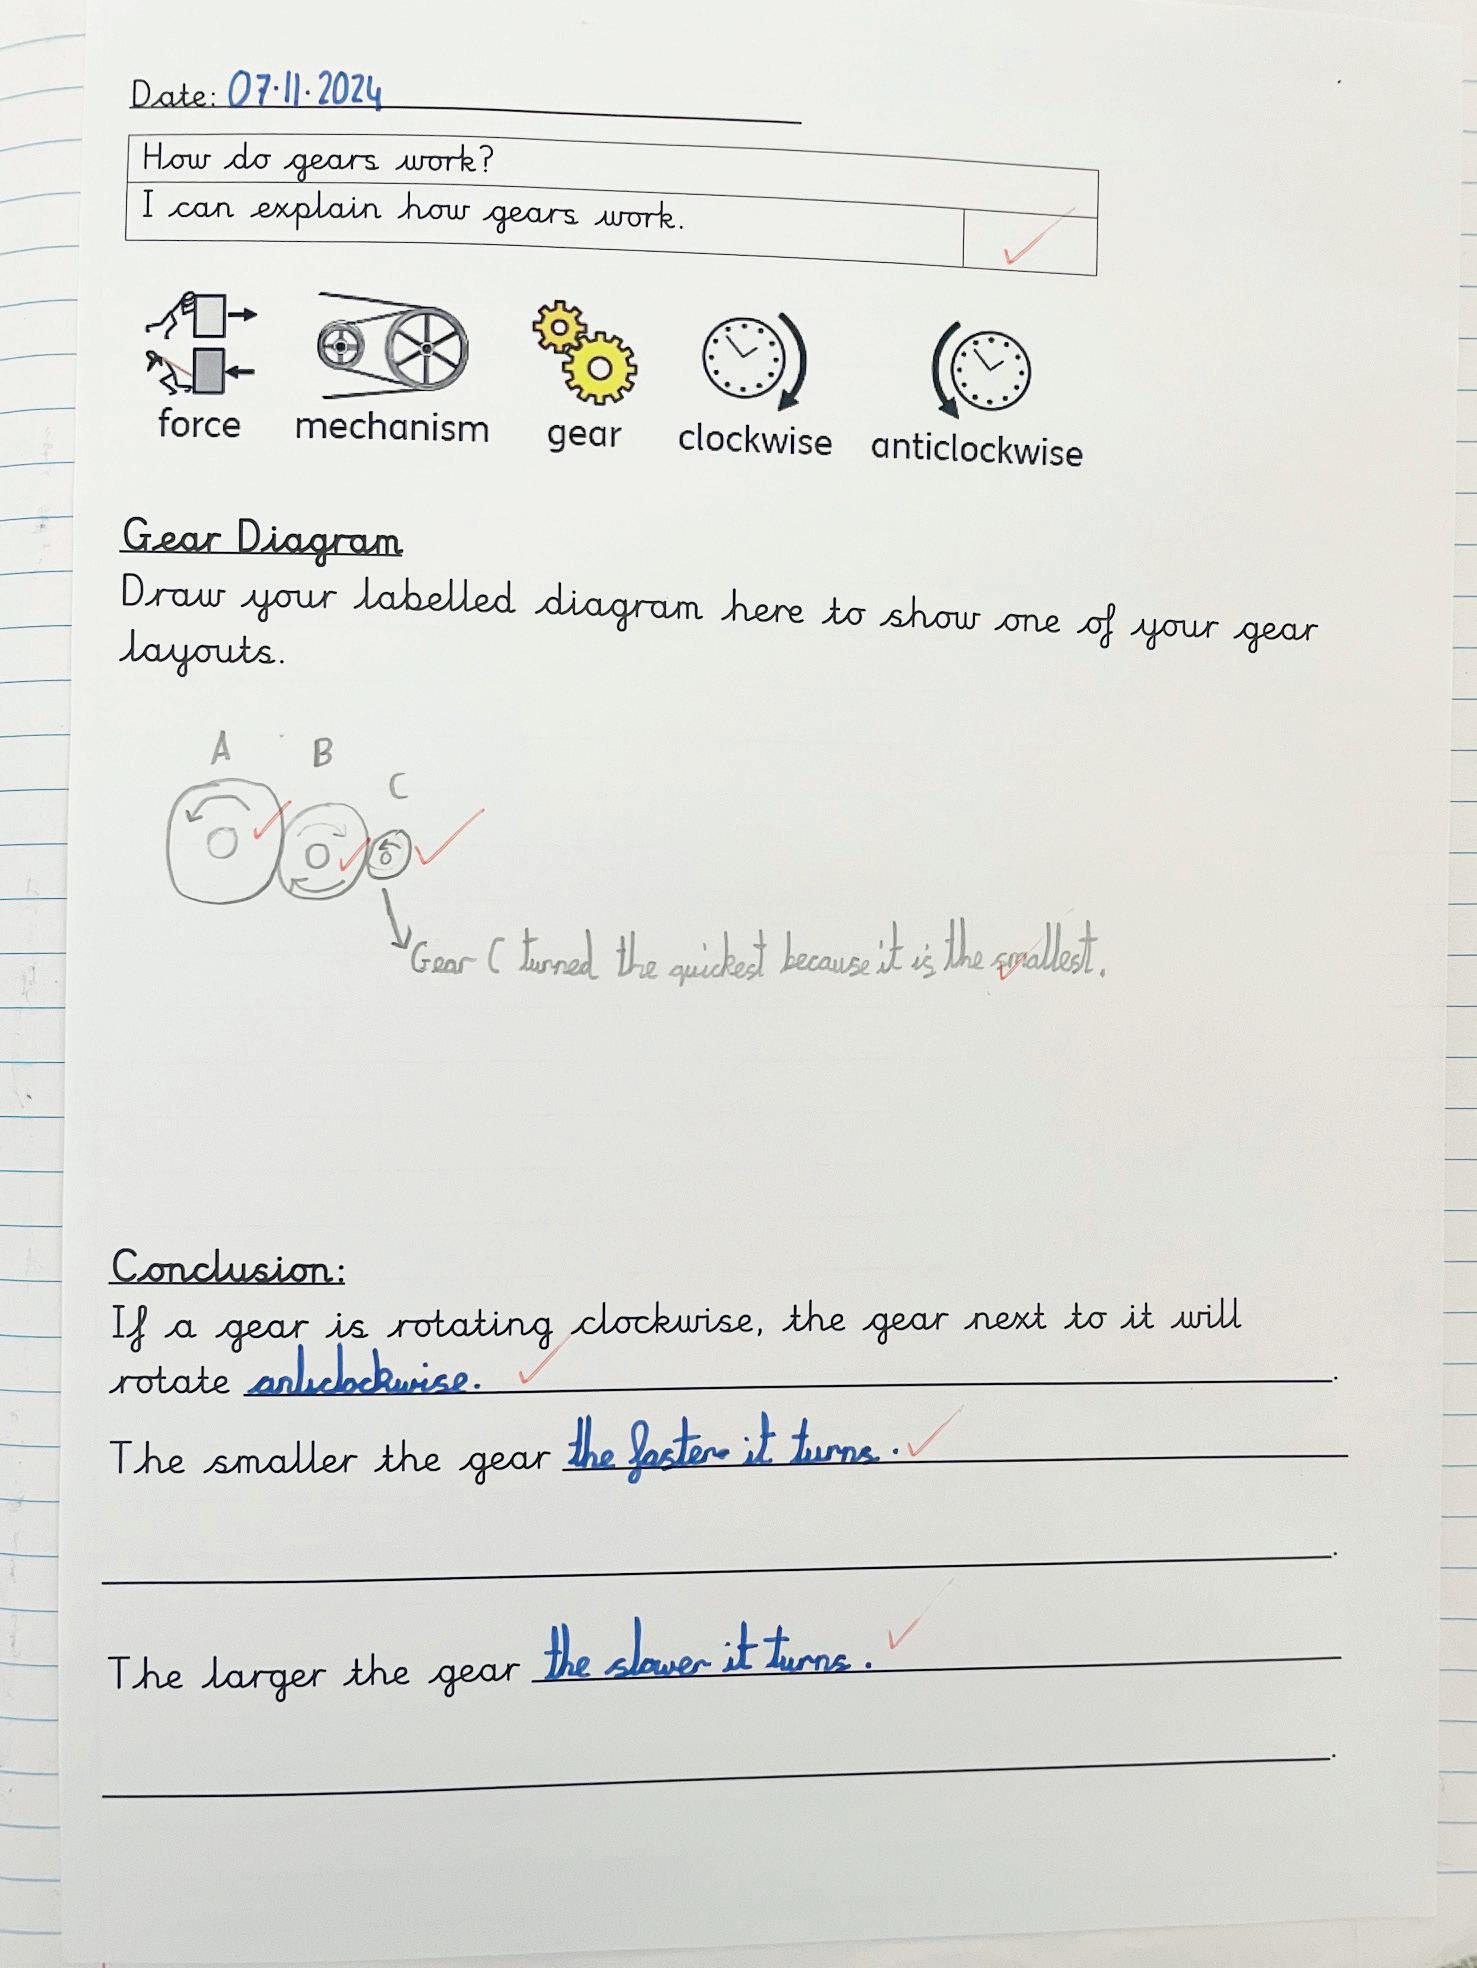 Date: 07.11.2024
How do gears work?
I can explain how gears work.
force mechanism gear clockwise anticlockwise
Gear Diagram
Draw your labelled diagram here to show one of your gear
layouts.
A B C
Gear C turned the quickest because it is the smallest.
Conclusion:
If a gear is rotating clockwise, the gear next to it will
rotate anticlockwise. .
The smaller the gear the faster it turns.
.
The larger the gear the slower it turns.
.